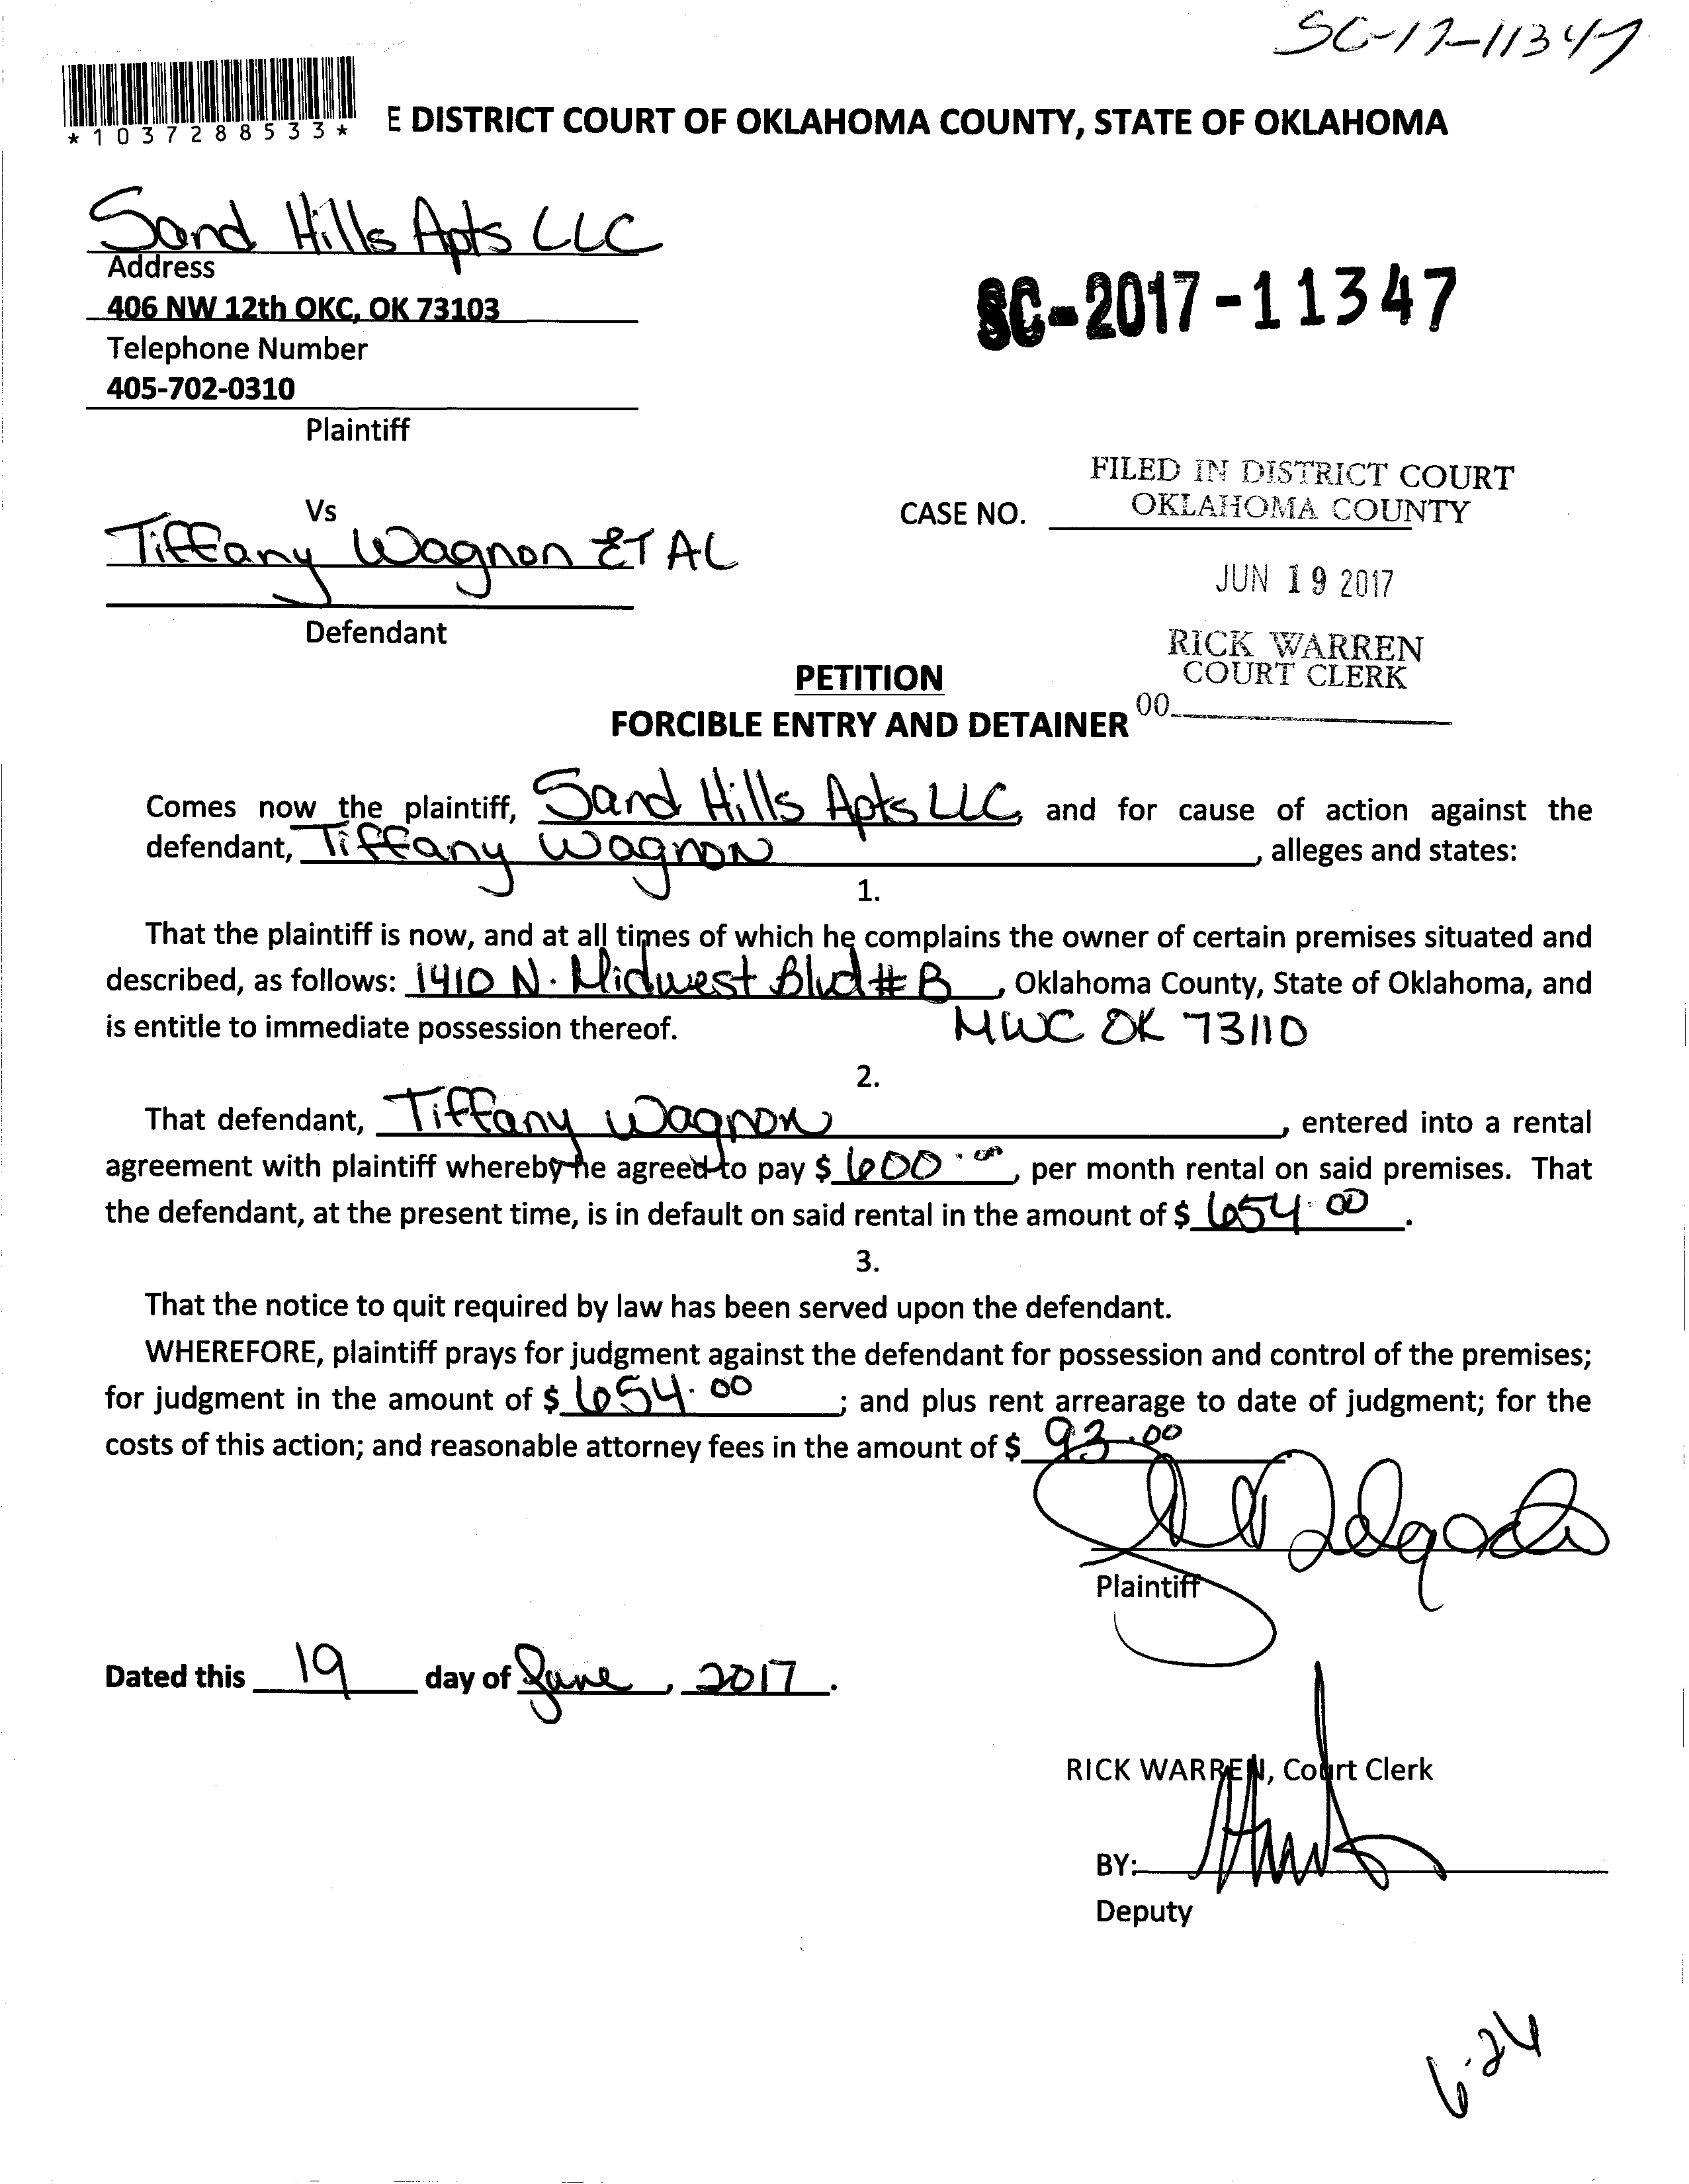 SC-17-11347
*1037288533*
E DISTRICT COURT OF OKLAHOMA COUNTY, STATE OF OKLAHOMA
Sand Hills Apts LLC
Address
406 NW 12th OKC, OK 73103
Telephone Number
405-702-0310
Plaintiff
SC-2017-11347
Vs
Tiffany Wagnon ET AL
Defendant
CASE NO.
FILED IN DISTRICT COURT
OKLAHOMA COUNTY
JUN 19 2017
RICK WARREN
COURT CLERK
00
PETITION
FORCIBLE ENTRY AND DETAINER
Comes now the plaintiff, Sand Hills Apts LLC, and for cause of action against the
defendant, Tiffany Wagnon, alleges and states:
1.
That the plaintiff is now, and at all times of which he complains the owner of certain premises situated and
described, as follows: 1410 N. Midwest Blvd # B, Oklahoma County, State of Oklahoma, and
is entitle to immediate possession thereof. MWC OK 73110
2.
That defendant, Tiffany Wagnon, entered into a rental
agreement with plaintiff whereby he agreed to pay $ 600.00, per month rental on said premises. That
the defendant, at the present time, is in default on said rental in the amount of $ 654.00.
3.
That the notice to quit required by law has been served upon the defendant.
WHEREFORE, plaintiff prays for judgment against the defendant for possession and control of the premises;
for judgment in the amount of $ 654.00; and plus rent arrearage to date of judgment; for the
costs of this action; and reasonable attorney fees in the amount of $ 93.00
Delgado
Plaintiff
Dated this 19 day of June, 2017.
RICK WARREN, Court Clerk
BY:
Deputy
6-24